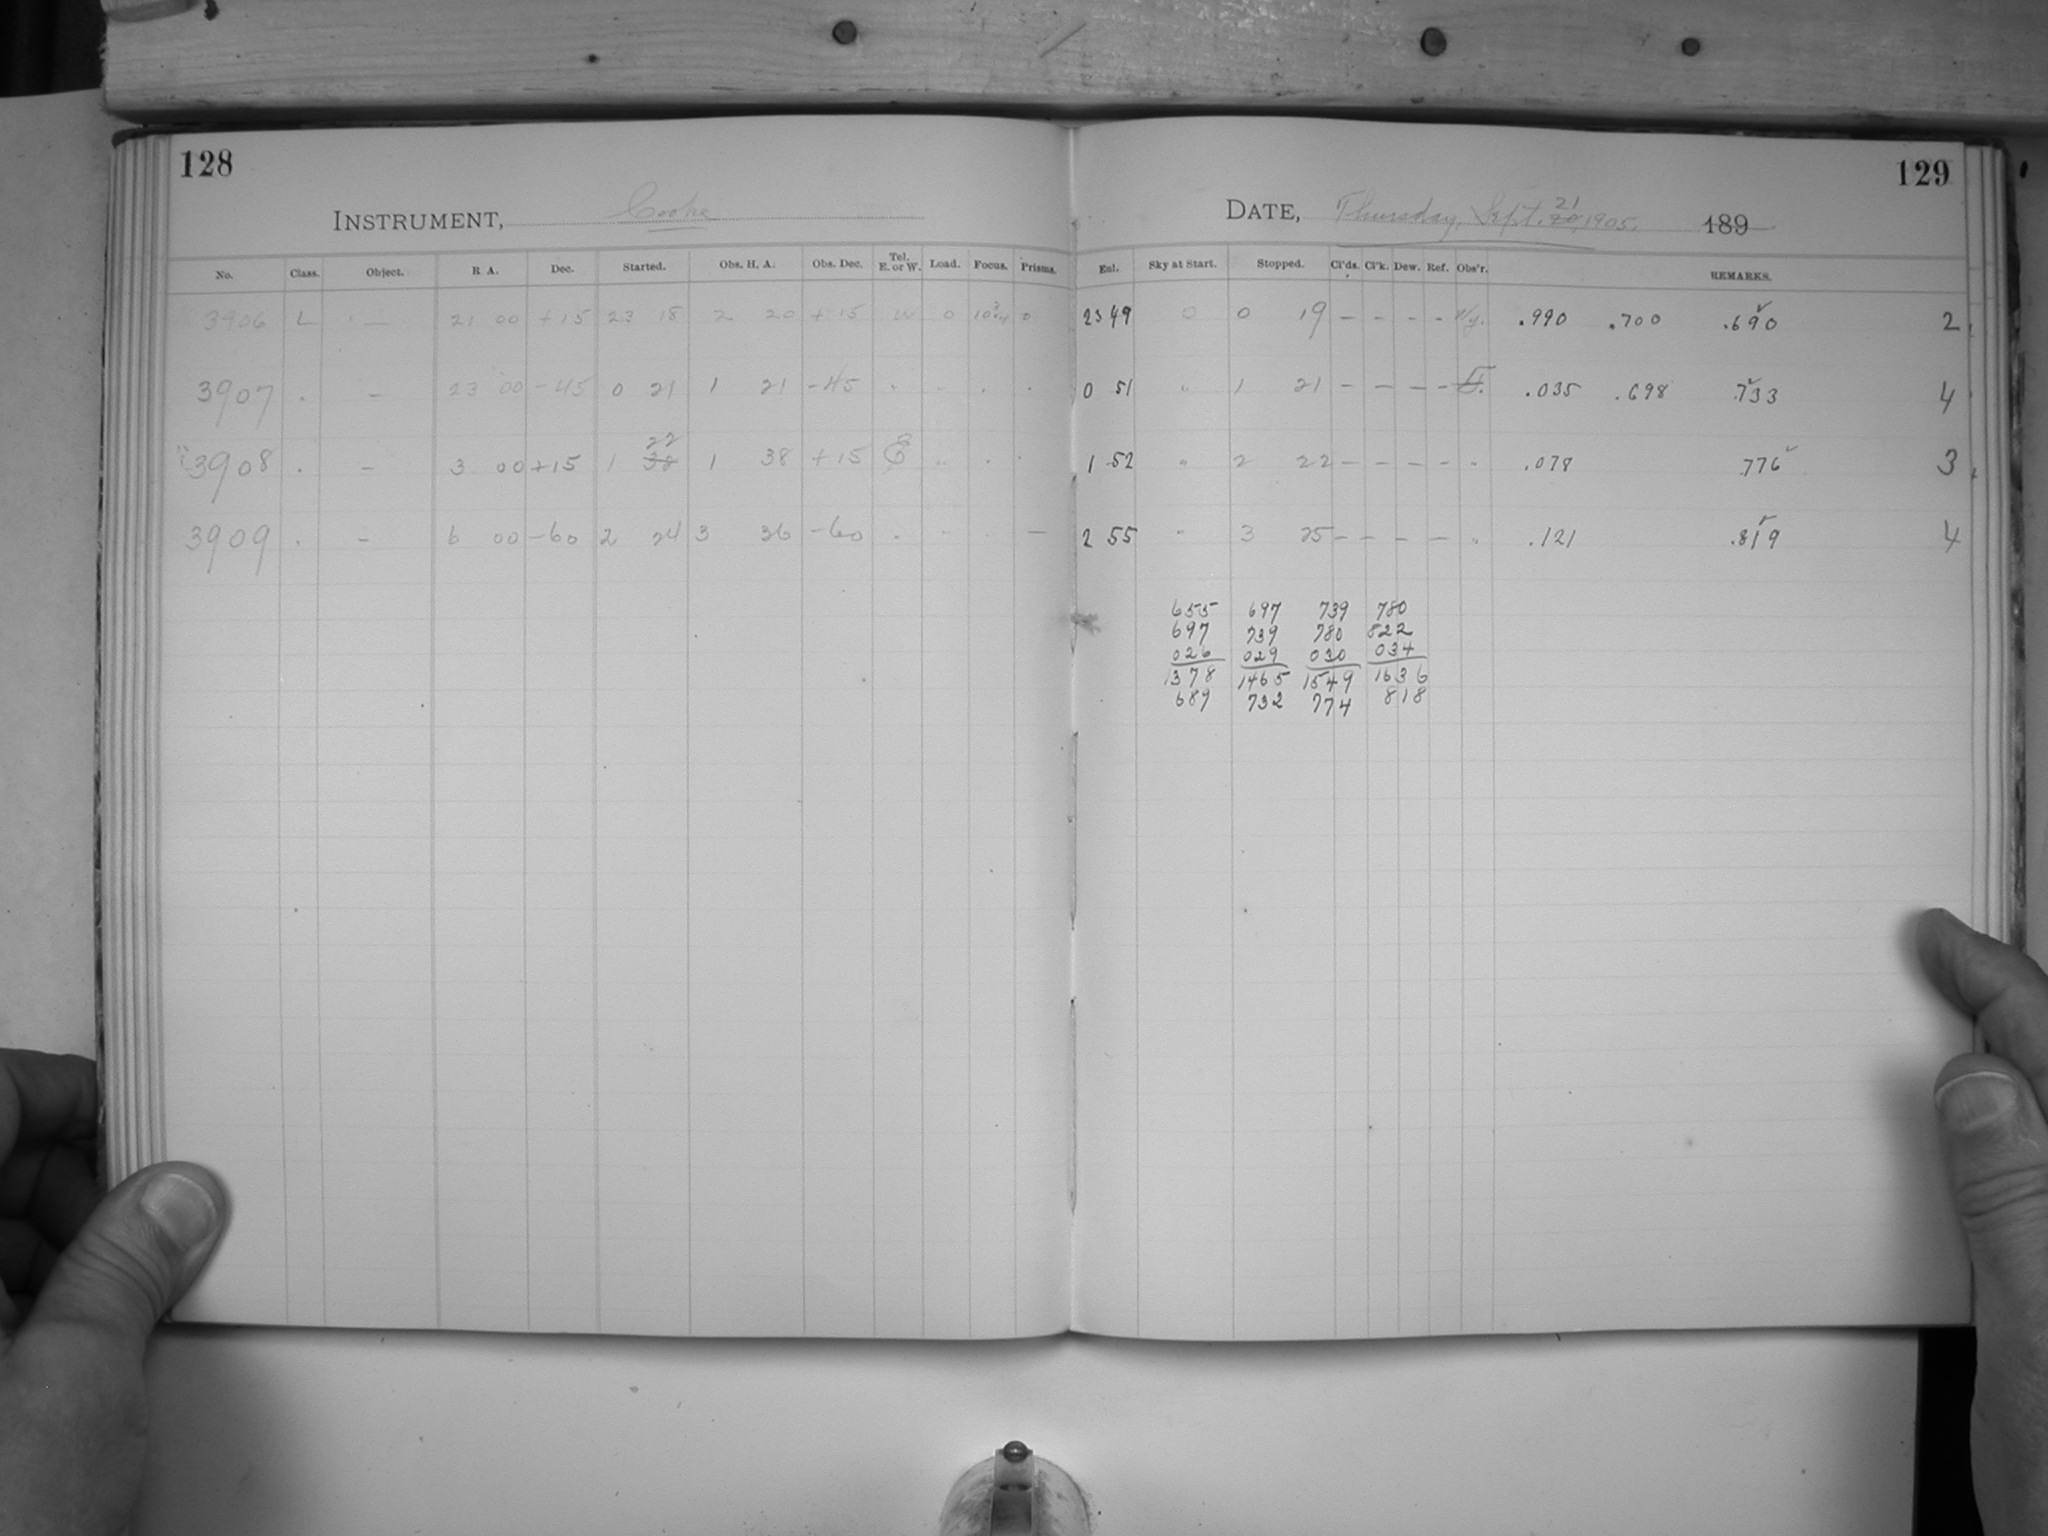 128
INSTRUMENT, Cooke
No. Class. Object. R. A. Dec. Started. Obs. H. A. Obs. Dec. Tel. E. or W. Load. Focus. Prisms.
3906 L — 21 00 +15 23 18 2 20 +15 W 0 10 3/4 0
3907 . — 23 00 -45 0 21 1 21 -45 " . . .
3908 . — 3 00 +15 1 38 22 1 38 +15 E " . .
3909 . — 6 00 -60 2 24 3 36 -60 . - . —
129
DATE, Thursday, Sept. 20, 21 1905. 189
Enl. Sky at Start. Stopped. Cl'ds. Cl'k. Dew. Ref. Obs'r. REMARKS.
23 49 0 0 19 — — — — .990 .700 .690 2
0 51 " 1 21 — — — — .035 .698 .733 4
1 52 " 2 22 — — — — " .078 .776 3
2 55 " 3 25 — — — — " .121 .819 4
655 697 739 780
697 739 780 822
026 029 030 034
1378 1465 1549 1636
689 732 774 818